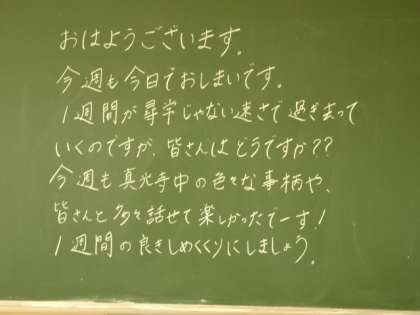 おはようございます。
今週も今日でおしまいです。
1週間が尋常じゃない速さで過ぎ去って
いくのですが、皆さんはどうですか??
今週も真光寺中の色々な事柄や、
皆さんと多々話せて楽しかったでーす!
1週間の良きしめくくりにしましょう。